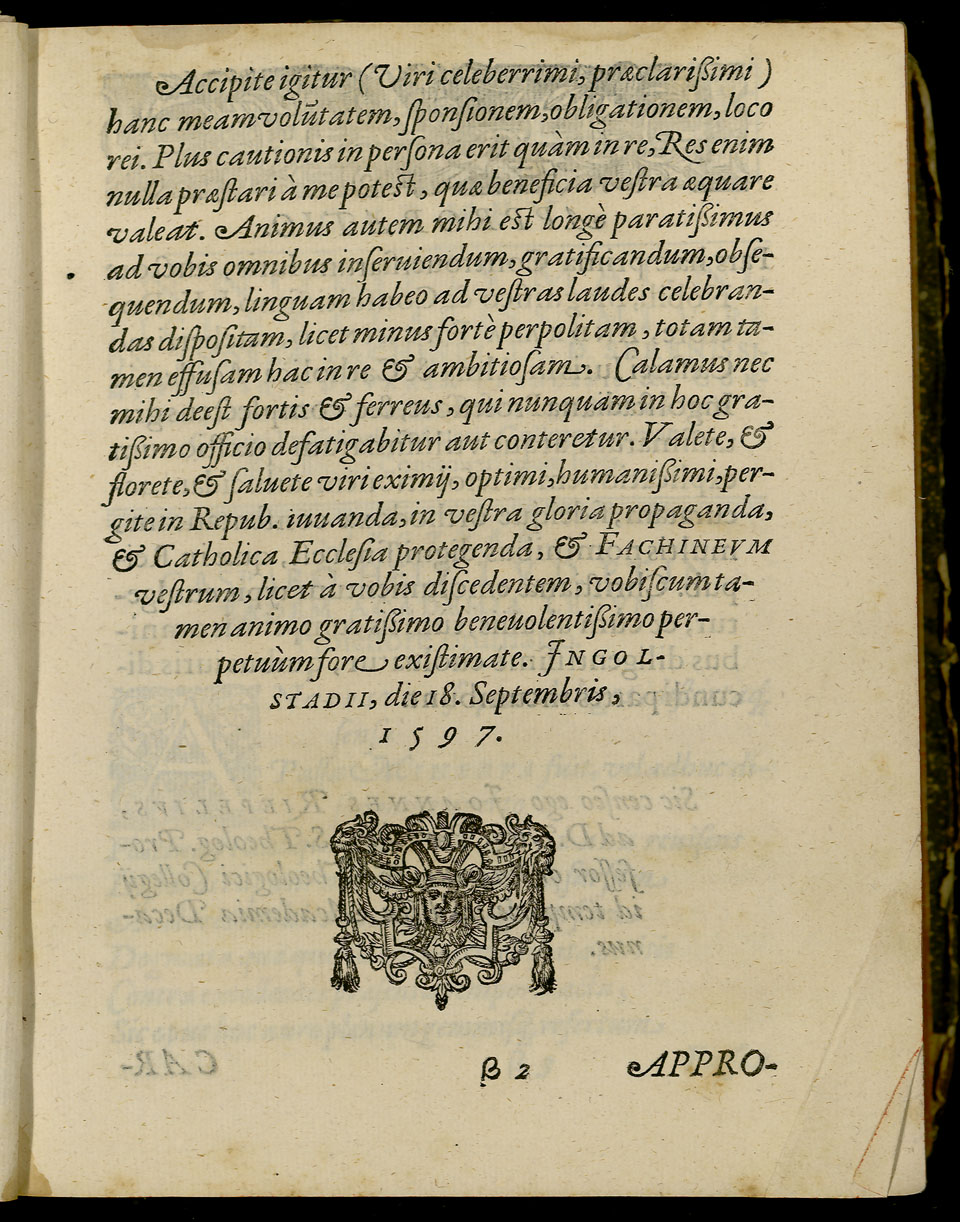 Accipite igitur (Viri celeberrimi, præclarißimi)
hanc meam volũtatem, ſponſionem, obligationem, loco
rei. Plus cautionis in perſona erit quàm in re, Res enim
nulla præſtari à me poteſt, quæ beneficia veſtra æquare
valeat. Animus autem mihi eſt longè paratißimus
ad vobis omnibus inſeruiendum, gratificandum, obſe-
quendum, linguam habeo ad veſtras laudes celebran-
das diſpoſitam, licet minus fortè perpolitam, totam ta-
men effuſam hac in re & ambitioſam. Calamus nec
mihi deeſt fortis & ferreus, qui nunquam in hoc gra-
tißimo officio defatigabitur aut conteretur. Valete, &
florete, & ſaluete viri eximij, optimi, humanißimi, per-
gite in Repub. iuuanda, in veſtra gloria propaganda,
& Catholica Eccleſia protegenda, & FACHINEVM
veſtrum, licet à vobis diſcedentem, vobiſcum ta-
men animo gratißimo beneuolentißimo per-
petuùm fore exiſtimate. INGOL-
STADII, die 18. Septembris,
1597.
B 2 APPRO-